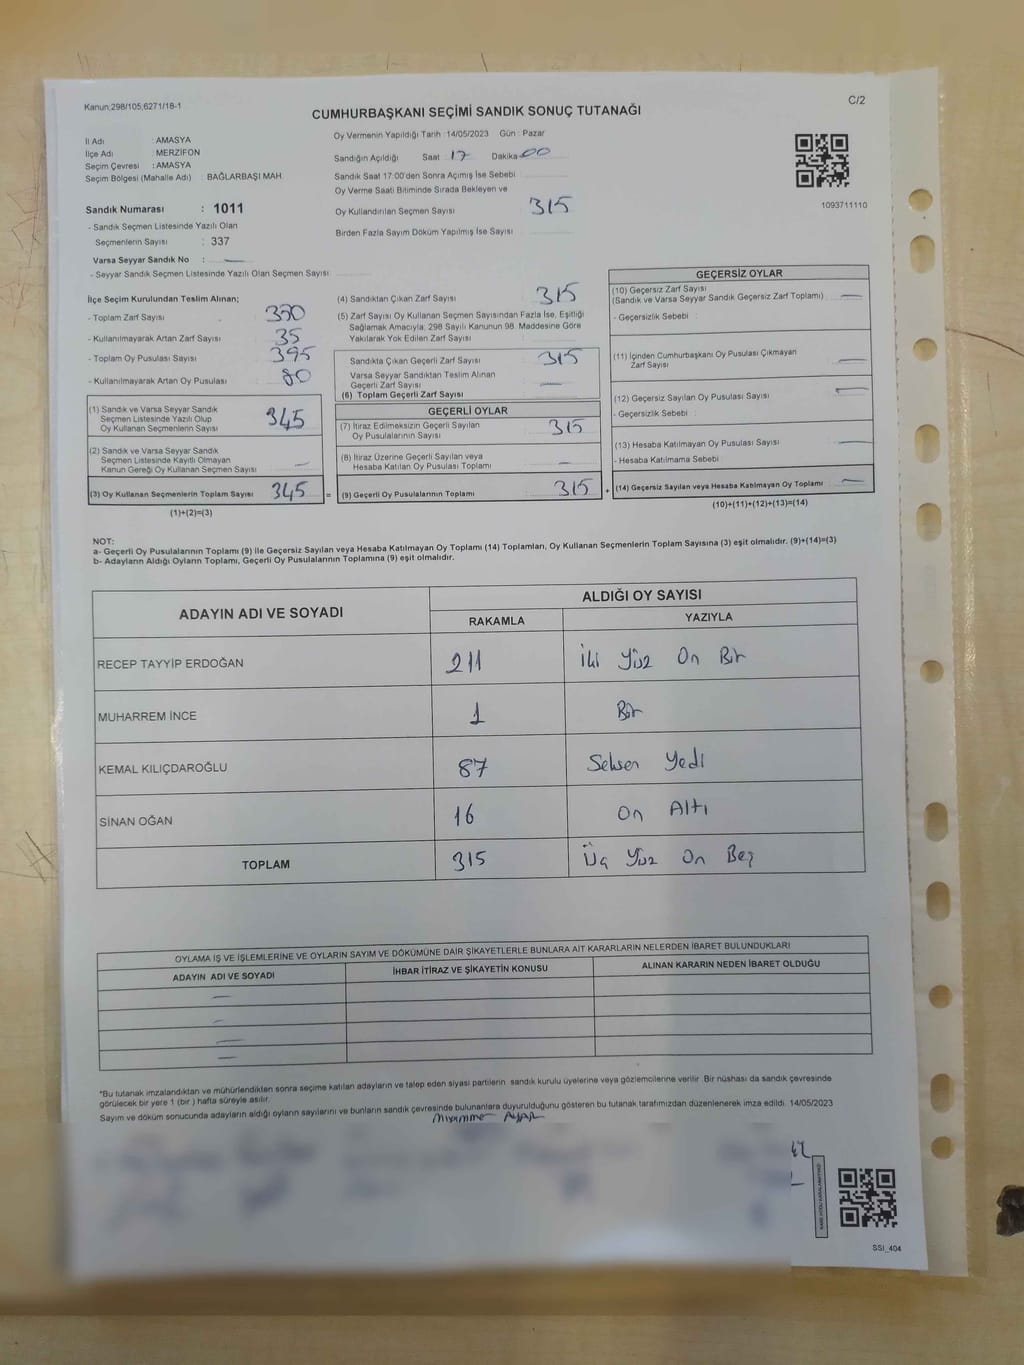 Kanun;298/105,6271/18-1
CUMHURBAŞKANI SEÇİMİ SANDIK SONUÇ TUTANAĞI
C/2
İl Adı : AMASYA
İlçe Adı : MERZİFON
Seçim Çevresi : AMASYA
Seçim Bölgesi (Mahalle Adı) : BAĞLARBAŞI MAH.
Sandık Numarası : 1011
- Sandık Seçmen Listesinde Yazılı Olan
Seçmenlerin Sayısı : 337
Varsa Seyyar Sandık No : —
- Seyyar Sandık Seçmen Listesinde Yazılı Olan Seçmen Sayısı
Oy Vermenin Yapıldığı Tarih :14/05/2023 Gün : Pazar
Sandığın Açıldığı Saat 17 Dakika 00
Sandık Saat 17:00'den Sonra Açımış İse Sebebi
Oy Verme Saati Bitiminde Sırada Bekleyen ve
Oy Kullandırılan Seçmen Sayısı 315
Birden Fazla Sayım Döküm Yapılmış İse Sayısı
1093711110
İlçe Seçim Kurulundan Teslim Alınan;
- Toplam Zarf Sayısı 350
- Kullanılmayarak Artan Zarf Sayısı 35
- Toplam Oy Pusulası Sayısı 395
- Kullanılmayarak Artan Oy Pusulası 80
(1) Sandık ve Varsa Seyyar Sandık
Seçmen Listesinde Yazılı Olup
Oy Kullanan Seçmenlerin Sayısı 345
(2) Sandık ve Varsa Seyyar Sandık
Seçmen Listesinde Kayıtlı Olmayan
Kanun Gereği Oy Kullanan Seçmen Sayısı —
(3) Oy Kullanan Seçmenlerin Toplam Sayısı 345 =
(1)+(2)=(3)
(4) Sandıktan Çıkan Zarf Sayısı 315
(5) Zarf Sayısı Oy Kullanan Seçmen Sayısından Fazla İse, Eşitliği
Sağlamak Amacıyla, 298 Sayılı Kanunun 98. Maddesine Göre
Yakılarak Yok Edilen Zarf Sayısı
Sandıkta Çıkan Geçerli Zarf Sayısı 315
Varsa Seyyar Sandıktan Teslim Alınan
Geçerli Zarf Sayısı —
(6) Toplam Geçerli Zarf Sayısı
GEÇERLİ OYLAR
(7) İtiraz Edilmeksizin Geçerli Sayılan
Oy Pusulalarının Sayısı 315
(8) İtiraz Üzerine Geçerli Sayılan veya
Hesaba Katılan Oy Pusulası Toplamı —
(9) Geçerli Oy Pusulalarının Toplamı 315 +
GEÇERSİZ OYLAR
(10) Geçersiz Zarf Sayısı
(Sandık ve Varsa Seyyar Sandık Geçersiz Zarf Toplamı) —
- Geçersizlik Sebebi :
(11) İçinden Cumhurbaşkanı Oy Pusulası Çıkmayan
Zarf Sayısı —
(12) Geçersiz Sayılan Oy Pusulası Sayısı —
- Geçersizlik Sebebi :
(13) Hesaba Katılmayan Oy Pusulası Sayısı —
- Hesaba Katılmama Sebebi :
(14) Geçersiz Sayılan veya Hesaba Katılmayan Oy Toplamı —
(10)+(11)+(12)+(13)=(14)
NOT:
a- Geçerli Oy Pusulalarının Toplamı (9) ile Geçersiz Sayılan veya Hesaba Katılmayan Oy Toplamı (14) Toplamları, Oy Kullanan Seçmenlerin Toplam Sayısına (3) eşit olmalıdır. (9)+(14)=(3)
b- Adayların Aldığı Oyların Toplamı, Geçerli Oy Pusulalarının Toplamına (9) eşit olmalıdır.
ADAYIN ADI VE SOYADI
ALDIĞI OY SAYISI
RAKAMLA YAZIYLA
RECEP TAYYİP ERDOĞAN 211 İki Yüz On Bir
MUHARREM İNCE 1 Bir
KEMAL KILIÇDAROĞLU 87 Seksen Yedi
SİNAN OĞAN 16 On Altı
TOPLAM 315 Üç Yüz On Beş
OYLAMA İŞ VE İŞLEMLERİNE VE OYLARIN SAYIM VE DÖKÜMÜNE DAİR ŞİKAYETLERLE BUNLARA AİT KARARLARIN NELERDEN İBARET BULUNDUKLARI
ADAYIN ADI VE SOYADI İHBAR İTİRAZ VE ŞİKAYETİN KONUSU ALINAN KARARIN NEDEN İBARET OLDUĞU
—
—
—
—
*Bu tutanak imzalandıktan ve mühürlendikten sonra seçime katılan adayların ve talep eden siyasi partilerin sandık kurulu üyelerine veya gözlemcilerine verilir. Bir nüshası da sandık çevresinde
görülecek bir yere 1 (bir ) hafta süreyle asılır.
Sayım ve döküm sonucunda adayların aldığı oyların sayılarını ve bunların sandık çevresinde bulunanlara duyurulduğunu gösteren bu tutanak tarafımızdan düzenlenerek imza edildi. 14/05/2023
SSI_404